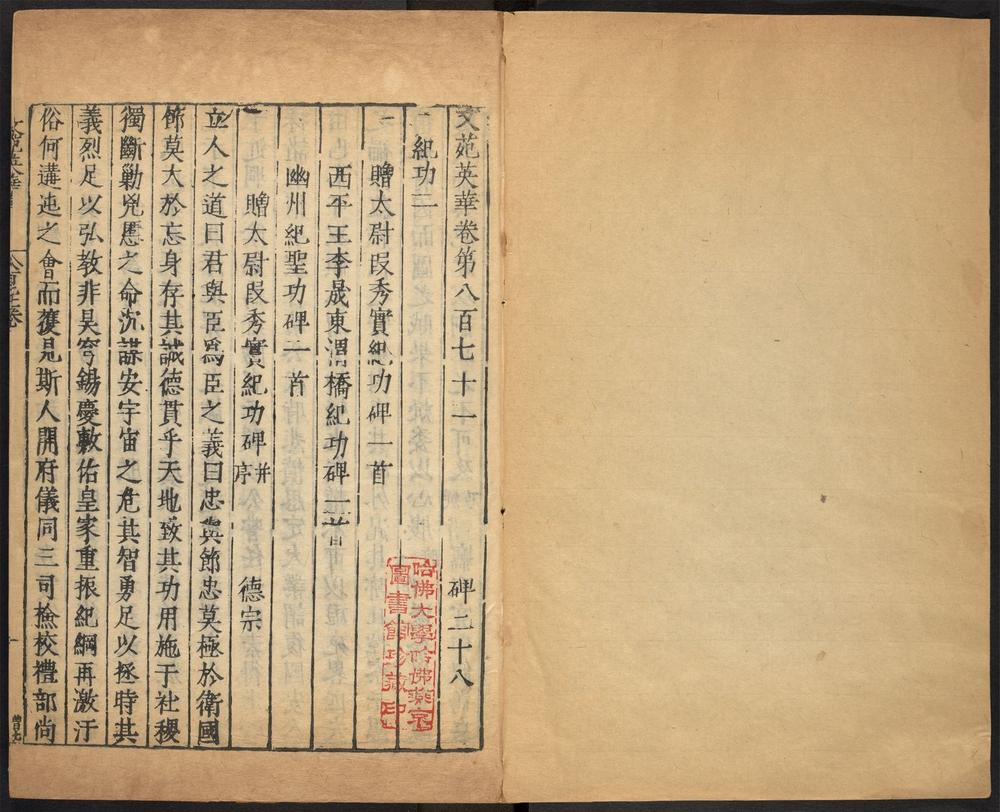 文苑英華卷第八百七十一　碑二十八
紀功二
贈太尉段秀實紀功碑一首
西平王李晟東渭橋紀功碑一首
幽州紀聖功碑一首
贈太尉段秀實紀功碑并序　德宗
立人之道曰君與臣爲臣之義曰忠與節忠莫極於衛國
節莫大於忘身存其誠德貫乎天地致其功用施于社稷
獨斷勦兇慝之命沉謀安宇宙之危其智勇足以拯時其
義烈足以弘教非昊穹錫慶敷佑皇家重振紀綱再激汙
俗何遘迍之會而獲見斯人開府儀同三司檢校禮部尚
哈佛大學哈佛燕京
圖書館珍藏印